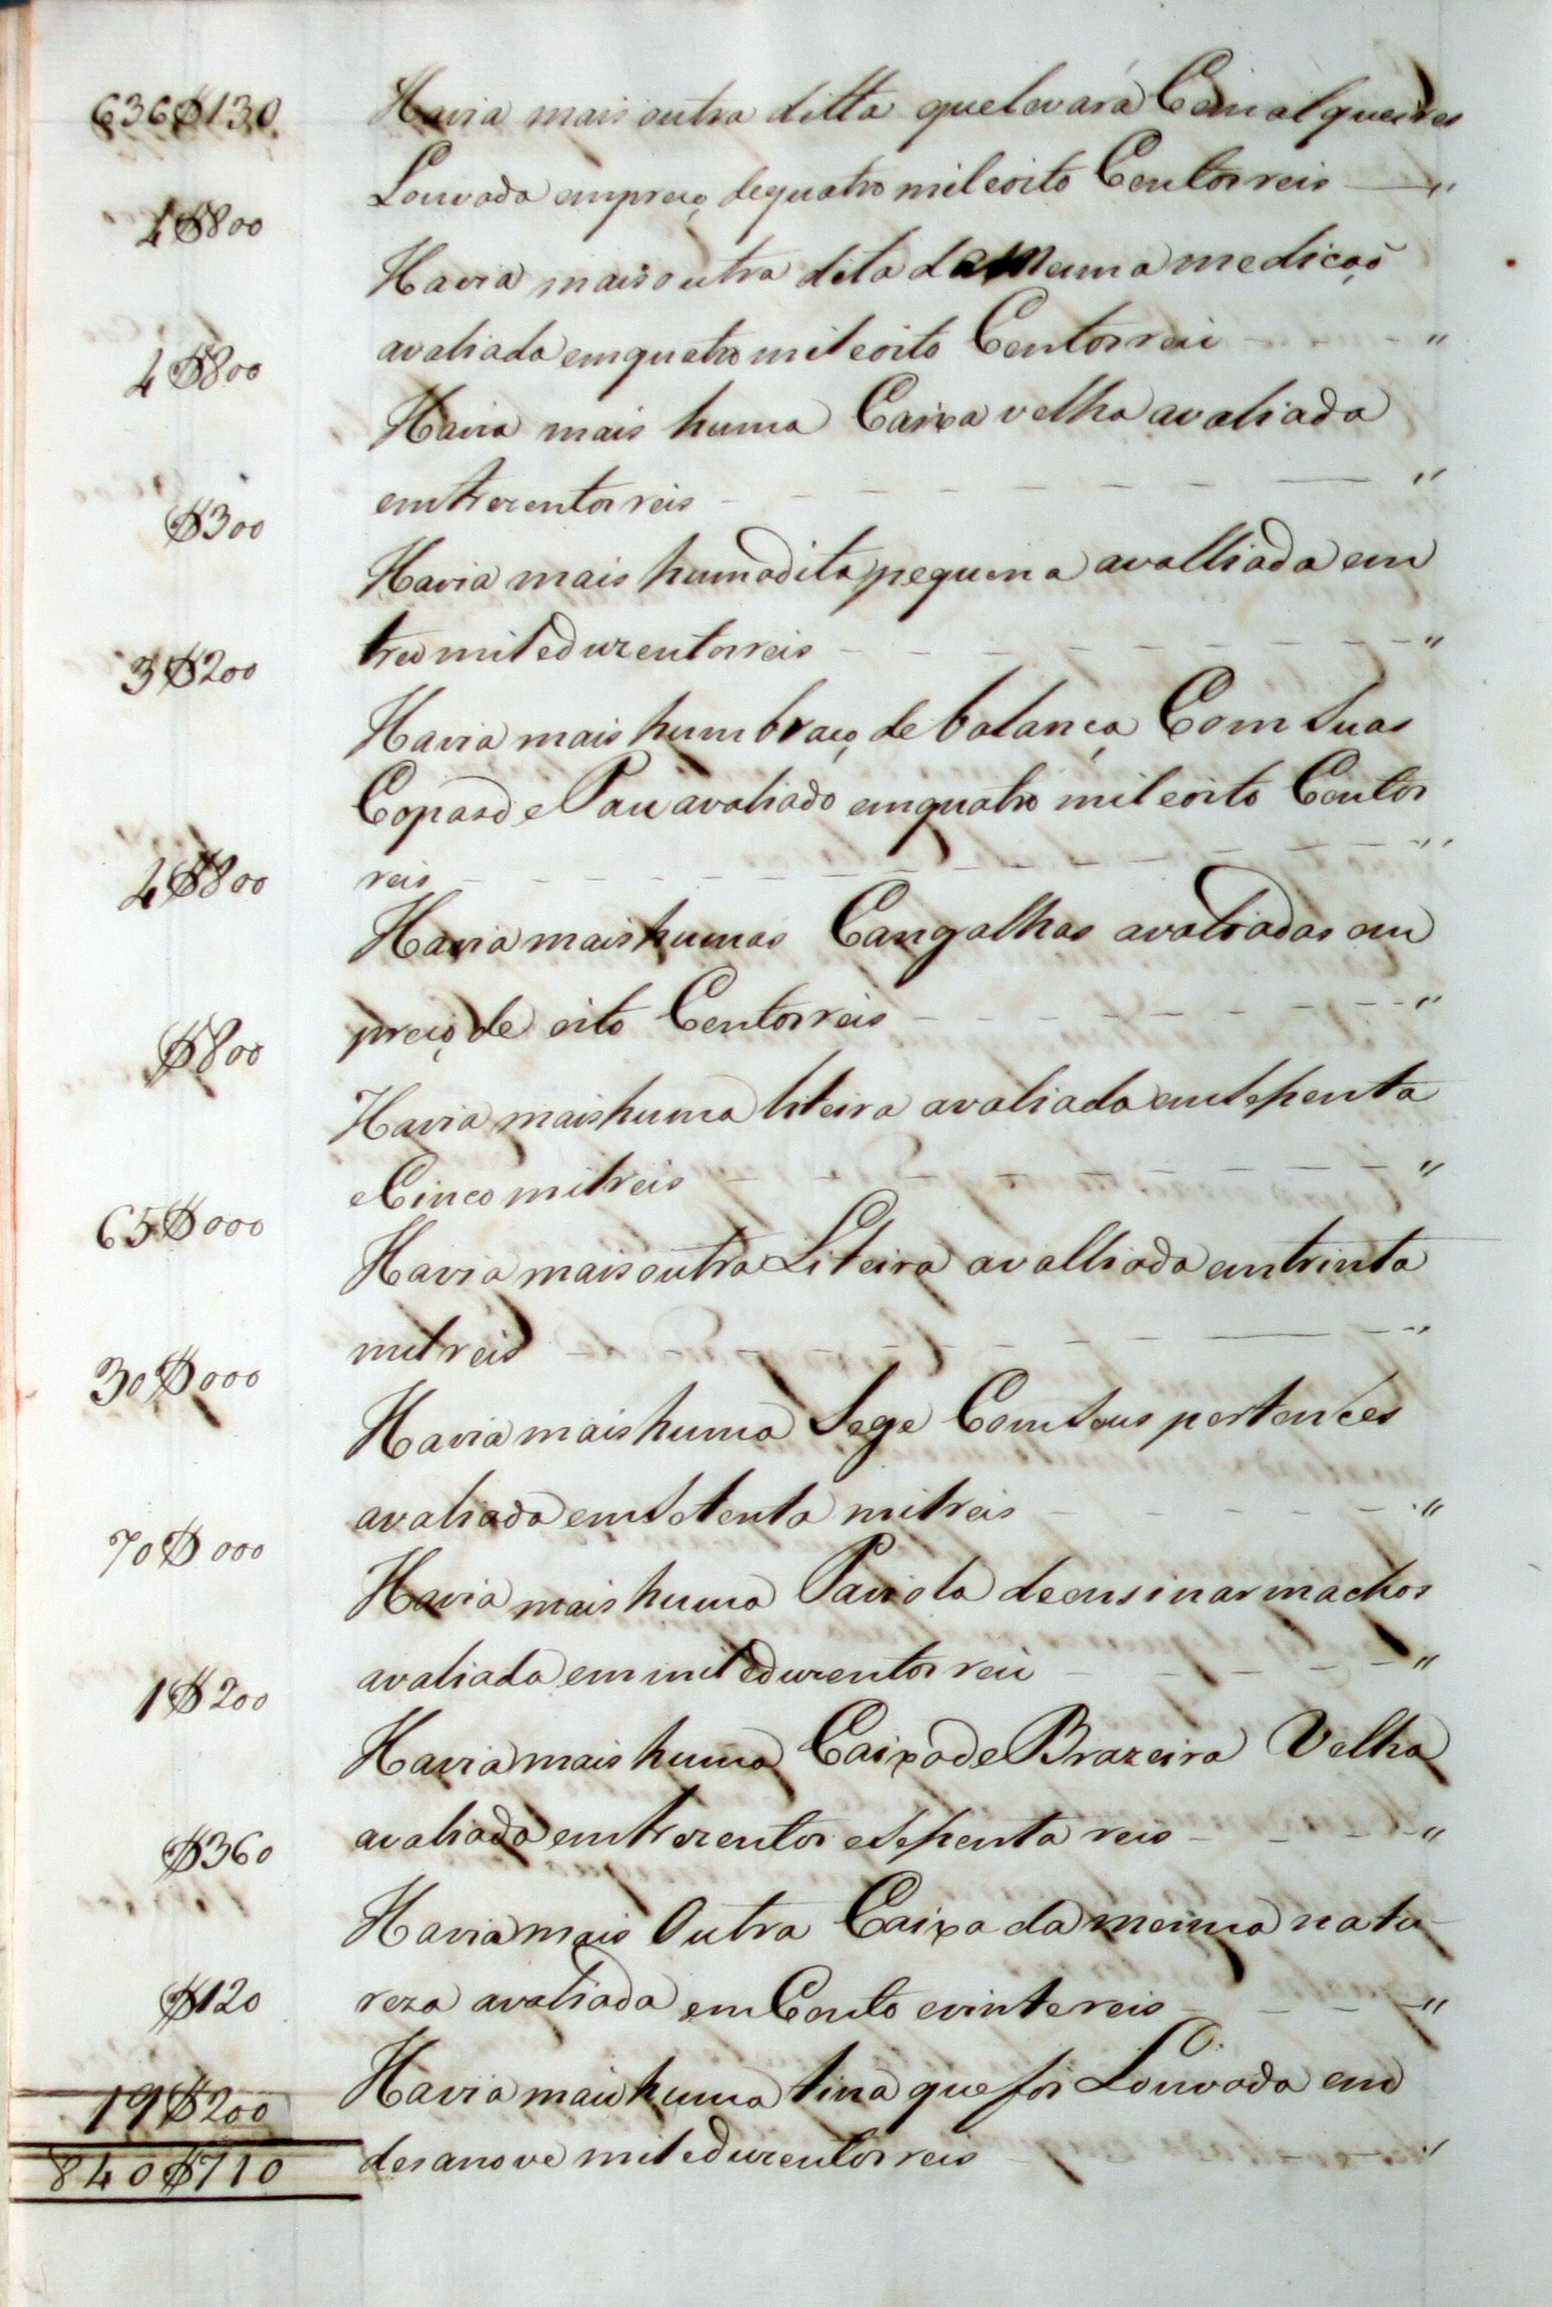 636$130 Havia mais outra ditta que levará Cem alqueires
Louvada em preço de quatro mil e oito Centos reis
4$800
Havia mais outra dita da mesma medicaõ
avaliada em quatro mil e oito Centos reis
4$800
Havia mais huma Caixa velha avaliada
em trezentos reis
$300
Havia mais huma dita pequena avalliada em
tres mil e duzentos reis
3$200
Havia mais hum braço de balança Com suas
Copas de Pau avaliado em quatro mil e oito Centos
reis
4$800
Havia mais humas Cangalhas avaliadas em
preço de oito Centos reis
$800
Havia mais huma liteira avaliada em sepenta
e Cinco mil reis
65$000
Havia mais outra Liteira avalliada em trinta
mil reis
30$000
Havia mais huma Sege Com seus pertences
avaliada em setenta mil reis
70$000
Havia mais huma Paviola de ensinar machos
avaliada em mil e duzentos reis
1$200
Havia mais huma Caixa de Brazeira Velha
avaliada em trezentos e sepenta reis
$360
Havia mais Outra Caixa da mesma natu
reza avaliada em Cento e vinte reis
$120
Havia mais huma tina que foi Louvada em
19$200
desanove mil e duzentos reis
840$710